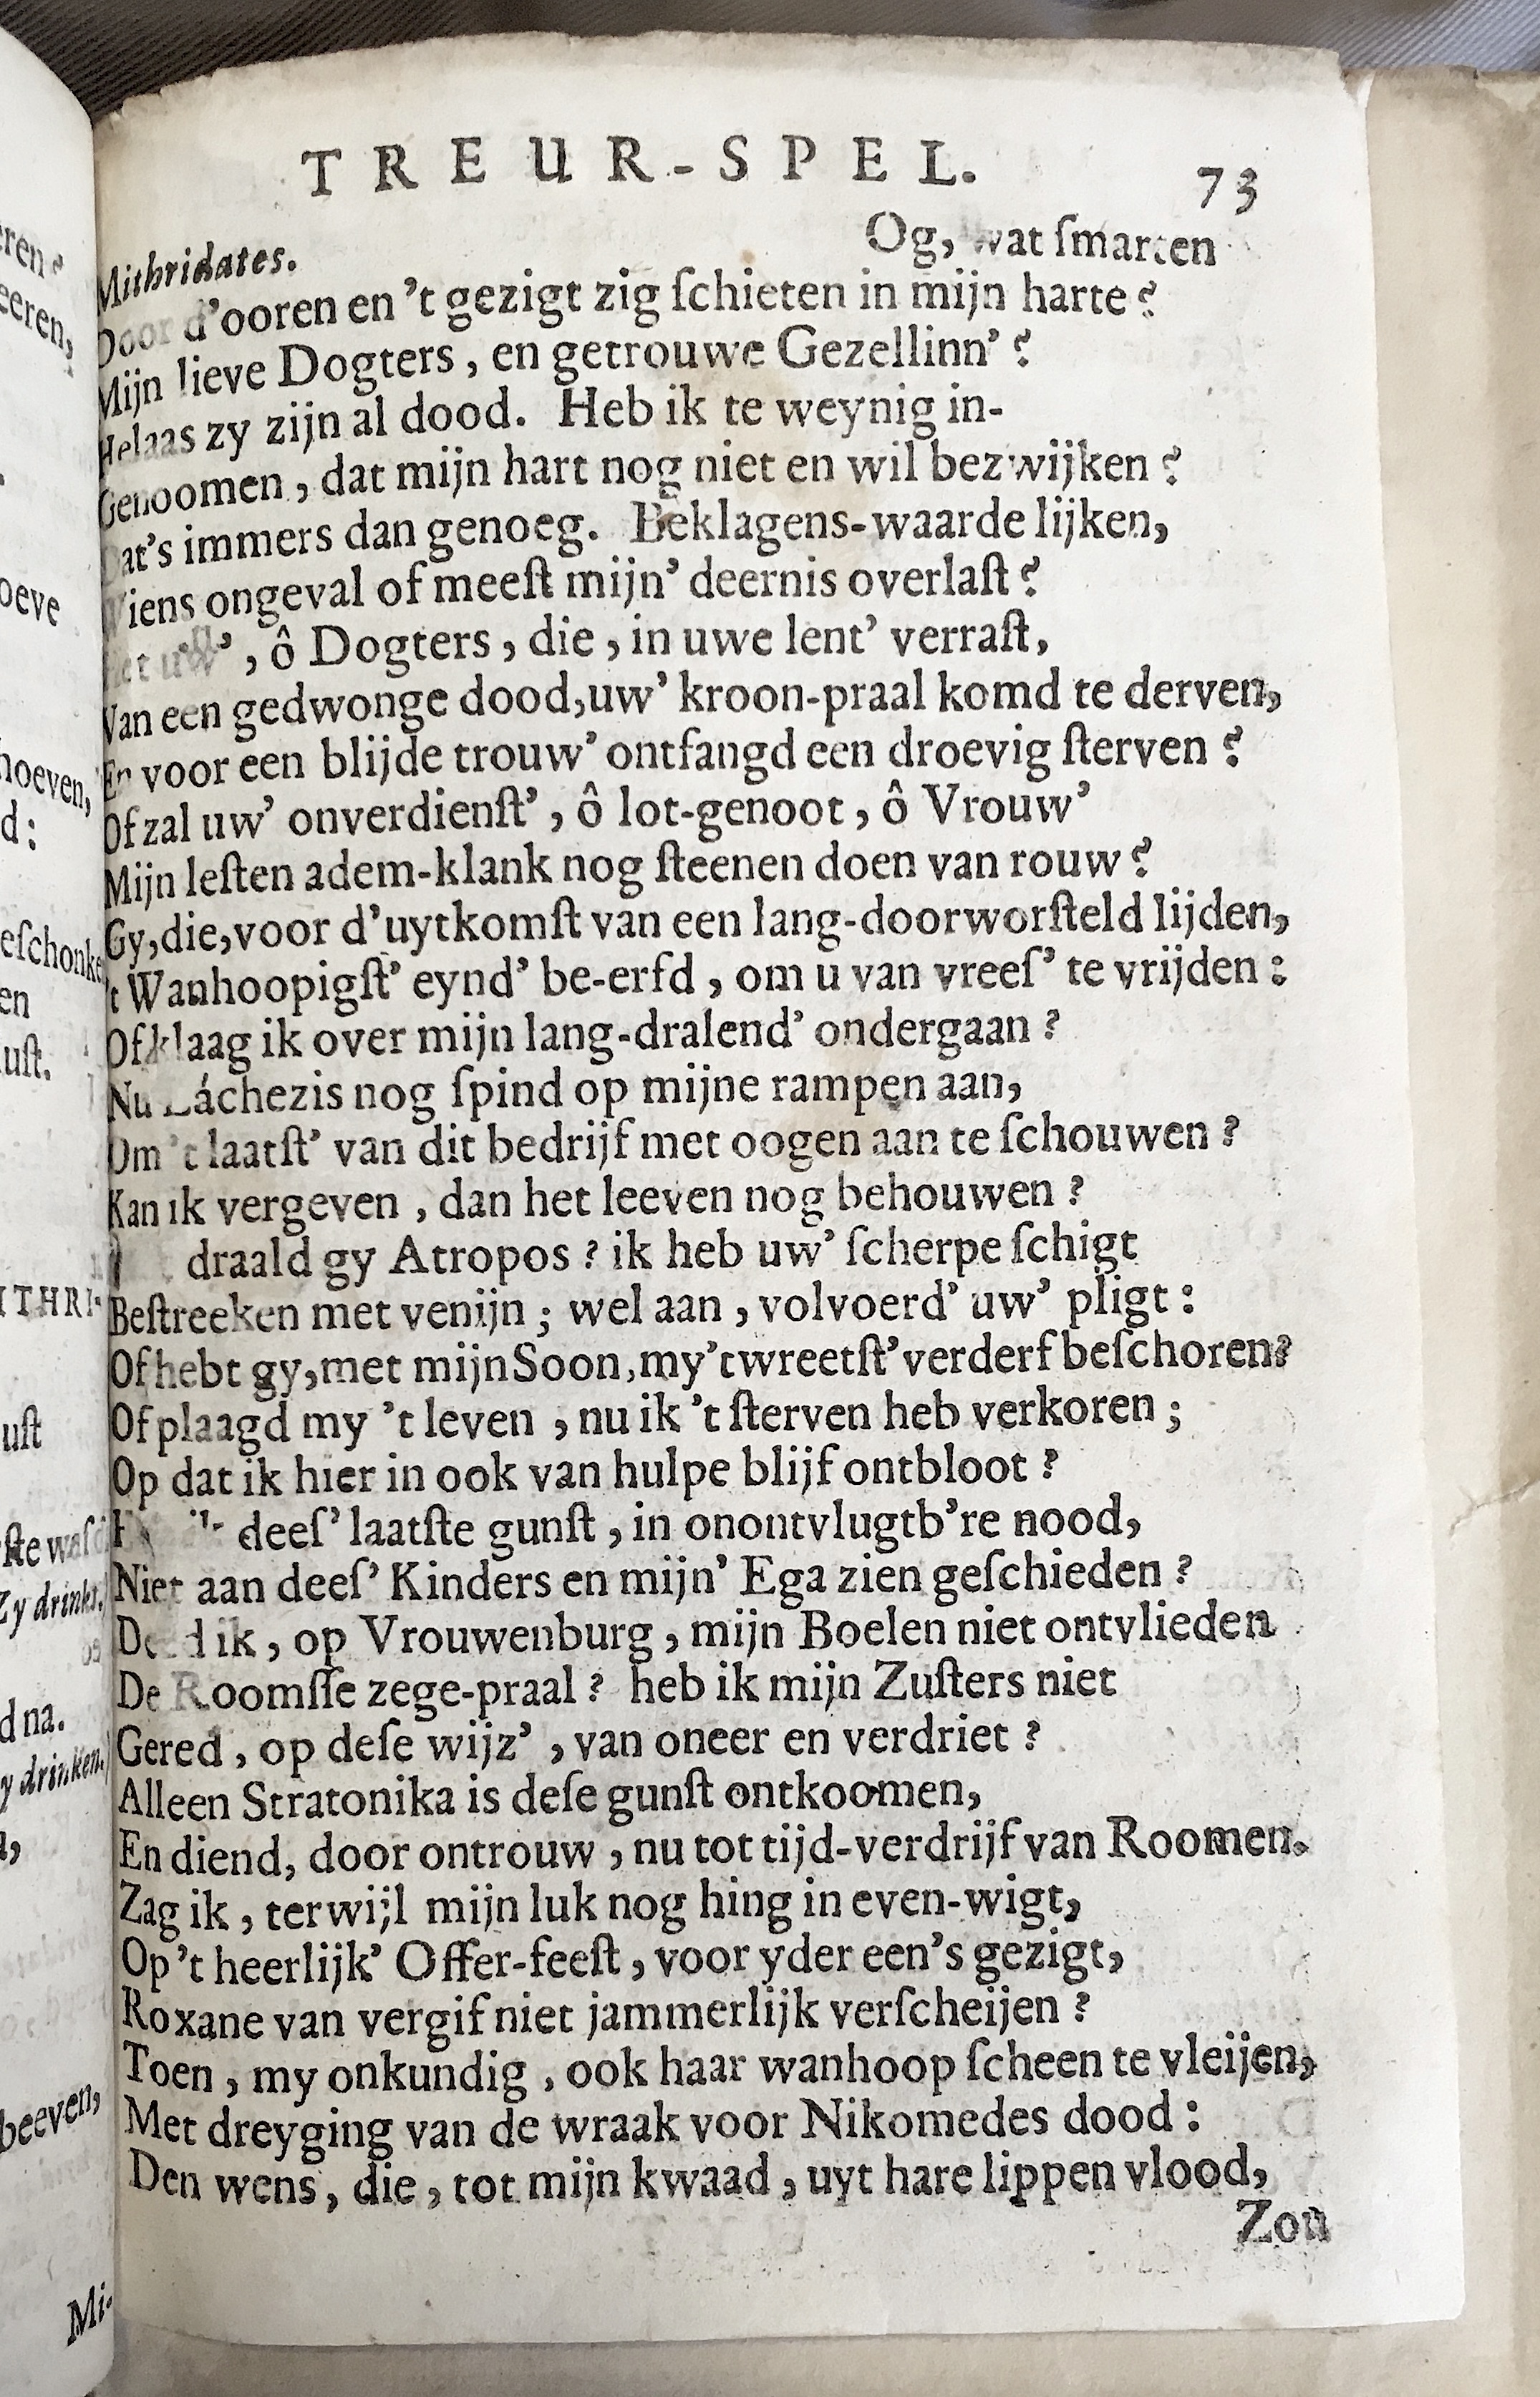 TREUR-SPEL. 73
Mithridates. Og, wat ſmarten
Door d'ooren en 't gezigt zig ſchieten in mijn harte?
Mijn lieve Dogters, en getrouwe Gezellinn'?
Helaas zy zijn al dood. Heb ik te weynig in-
Genoomen, dat mijn hart nog niet en wil bezwijken?
Dat's immers dan genoeg. Beklagens-waarde lijken,
Wiens ongeval of meeſt mijn' deernis overlaſt?
Het uw', ô Dogters, die, in uwe lent' verraſt,
Van een gedwonge dood, uw' kroon-praal komd te derven,
En voor een blijde trouw' ontfangd een droevig ſterven?
Of zal uw' onverdienſt', ô lot-genoot, ô Vrouw'
Mijn leſten adem-klank nog ſteenen doen van rouw?
Gy, die, voor d'uytkomſt van een lang-doorworſteld lijden,
't Wanhoopigſt' eynd' be-erfd, om u van vreeſ' te vrijden:
Of klaag ik over mijn lang-dralend' ondergaan?
Nu Láchezis nog ſpind op mijne rampen aan,
Om 't laatſt' van dit bedrijf met oogen aan te ſchouwen?
Kan ik vergeven, dan het leeven nog behouwen?
draald gy Atropos? ik heb uw' ſcherpe ſchigt
Beſtreeken met venijn; wel aan, volvoerd' uw' pligt:
Of hebt gy, met mijn Soon, my 't wreetſt' verderf beſchoren?
Of plaagd my 't leven, nu ik 't ſterven heb verkoren;
Op dat ik hier in ook van hulpe blijf ontbloot?
ik deeſ' laatſte gunſt, in onontvlugtb're nood,
Niet aan deeſ' Kinders en mijn' Ega zien geſchieden?
Deed ik, op Vrouwenburg, mijn Boelen niet ontvlieden
De Roomſſe zege-praal? heb ik mijn Zuſters niet
Gered, op deſe wijz', van oneer en verdriet?
Alleen Stratonika is deſe gunſt ontkoomen,
En diend, door ontrouw, nu tot tijd-verdrijf van Roomen.
Zag ik, terwijl mijn luk nog hing in even-wigt,
Op 't heerlijk' Offer-feeſt, voor yder een's gezigt,
Roxane van vergif niet jammerlijk verſcheijen?
Toen, my onkundig, ook haar wanhoop ſcheen te vleijen,
Met dreyging van de wraak voor Nikomedes dood:
Den wens, die, tot mijn kwaad, uyt hare lippen vlood,
Zou